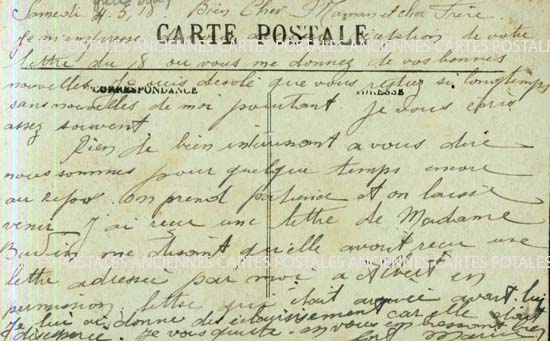 Samedi 4.5.18 Bien Cher Maman et cher Frère
CARTE POSTALE
Je m'empresse de votre
lettre du 18 ou vous me donnez de vos bonnes
nouvelles. Je suis désolé que vous restez si longtemps
CORRESPONDANCE ADRESSE
sans nouvelles de moi pourtant je vous écris
assez souvent
Rien de bien intéressant a vous dire
nous sommes pour quelque temps encore
au repos. on prend patience et on laisse
venir j'ai reçu une lettre de Madame
me disant qu'elle avait reçu une
CARTES POSTALES ANCIENNES CARTES POSTALES ANCIENNES CARTES POSTALES
lettre adressée par moi a Albert en
permission lettre qui était arrivée avant lui
Je lui ai donné des éclaircissement car elle était
Je vous quitte en vous embrassant bien
fort